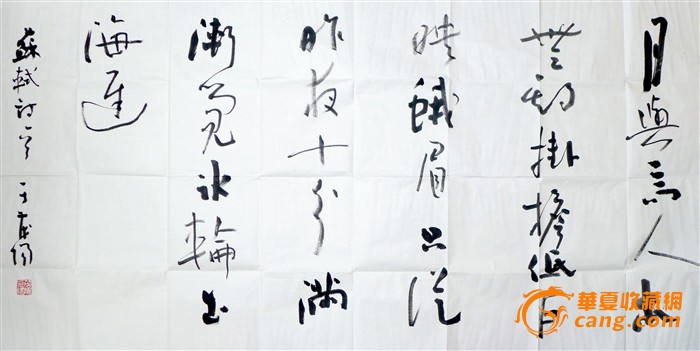 月與高人本
無期掛檐低戶
映蛾眉只從
昨夜十分滿
漸覺冰輪出
海遲
蘇軾詩
華夏收藏網
cang.com